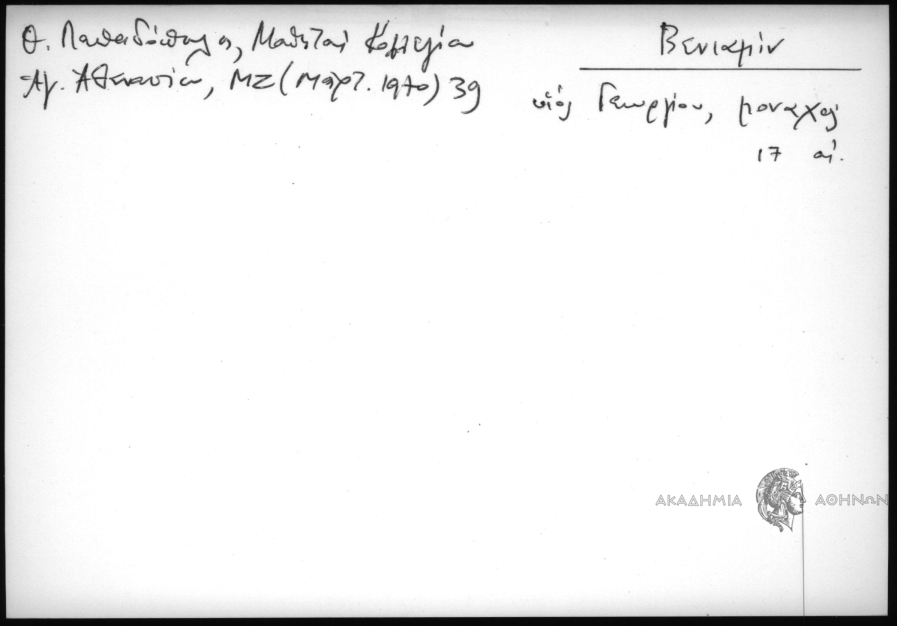 Θ. Παπαδόπουλος, Μαθηταί Κολλεγίου
Ἁγ. Ἀθανασίου, ΜΖ (Μάρτ. 1970) 39
Βενιαμίν
υἱός Γεωργίου, μοναχός
17 αἰ.
ΑΚΑΔΗΜΙΑ ΑΘΗΝΩΝ